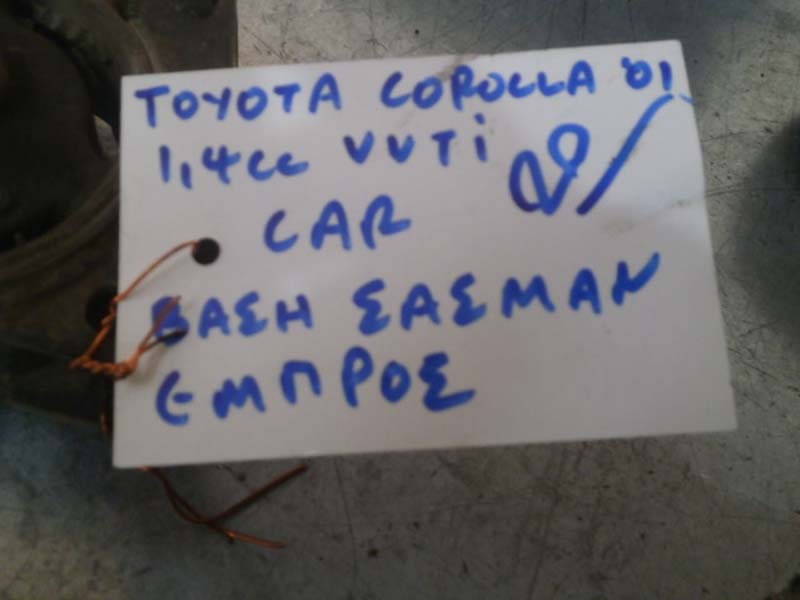 TOYOTA COROLLA '01
1,4cc VVTi
CAR
ΒΑΣΗ ΣΑΣΜΑΝ
ΕΜΠΡΟΣ